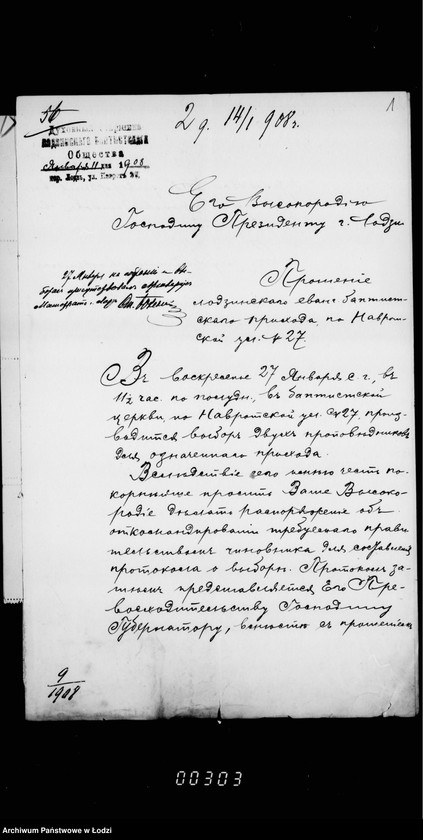 56
2 д. 14/I 908 г.
1
Духовный
Общества
Января 11 дня 1908
гор. Лодзь, ул. 27.
Его Высокородію
Господину Президенту г. Лодзи
27 Января на
Прошеніе
лодзинскаго еванг. баптист-
скаго прихода, по Наврот-
ской ул. № 27.
Въ воскресенье 27 Января с. г., въ
час. по полудн., въ баптистской
церкви, по Навротской ул. № 27, произ-
водится выборъ двухъ проповѣдниковъ
для означеннаго прихода.
Вслѣдствіе сего имѣю честь по-
корнѣйше просить Ваше Высоко-
родіе сдѣлать распоряженіе объ
откомандированіи требуемаго прави-
тельствомъ чиновника для составленія
протокола о выборѣ. Протоколъ за-
тѣмъ представляется Его Пре-
восходительству Господину
Губернатору, вмѣстѣ съ прошеніемъ
9
1908
00303
Archiwum Państwowe w Łodzi